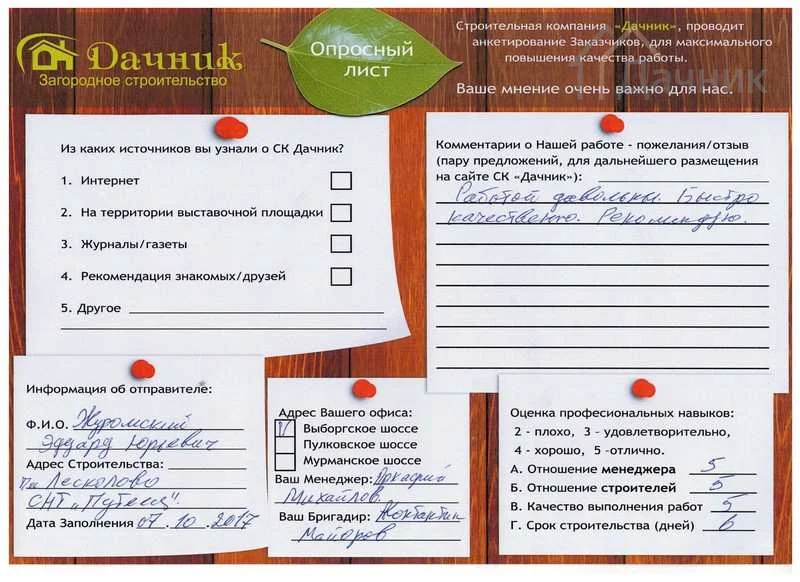 Дачник
Загородное строительство
Опросный
лист
Строительная компания «Дачник», проводит
анкетирование Заказчиков, для максимального
повышения качества работы.
Ваше мнение очень важно для нас.
Дачник
Из каких источников вы узнали о СК Дачник?
1. Интернет
2. На территории выставочной площадки
3. Журналы/газеты
4. Рекомендация знакомых/друзей
5. Другое
Комментарии о Нашей работе - пожелания/отзыв
(пару предложений, для дальнейшего размещения
на сайте СК «Дачник»):
Работой довольны. Быстро
качественно. Рекомендую.
Информация об отправителе:
Ф.И.О. Журомский
Эдуард Юрьевич
Адрес Строительства:
Лесколово
СНТ „Путеец".
Дата Заполнения 07.10.2017
Адрес Вашего офиса:
V Выборгское шоссе
Пулковское шоссе
Мурманское шоссе
Ваш Менеджер: Аркадий
Михайлов
Ваш Бригадир:
Майоров
Оценка професиональных навыков:
2 - плохо, 3 - удовлетворительно,
4 - хорошо, 5 -отлично.
А. Отношение менеджера 5
Б. Отношение строителей 5
В. Качество выполнения работ 5
Г. Срок строительства (дней) 6